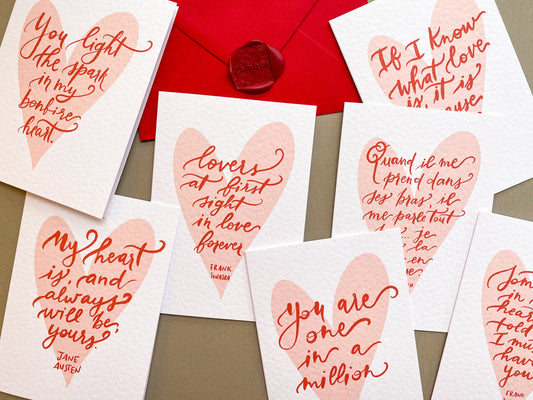 You light
the spark
in my
bonfire
heart.
If I Know
what love
is, it is
lovers
at first
sight
in love
forever
FRANK
SINATRA
Quand il me
prend dans
ses bras, il
me parle tout
je
la
My heart
is, and
always
will be,
yours.
JANE
AUSTEN
You are
one
in a
million
Som
in
hear
told
I mu
hav
you
FRANK